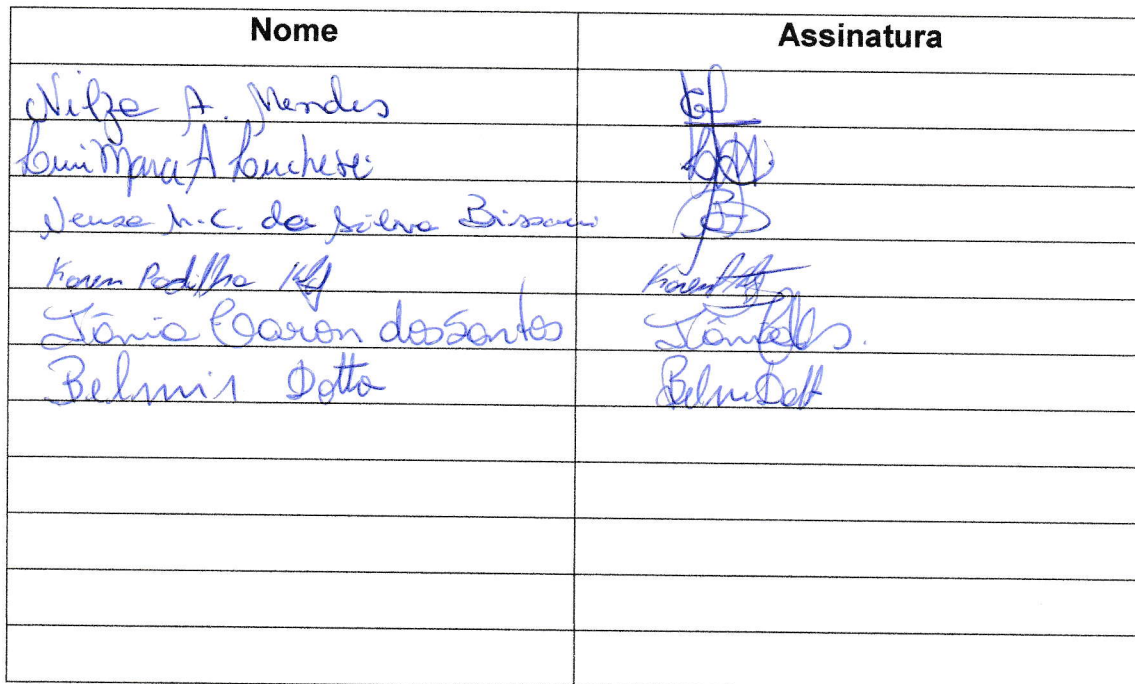 Nome Assinatura
Nilza A. Mendes
Mara A Luchese
Neusa M.C. da Silva Bissani
Karen Padilha Karen
Tânia Caron dos Santos Tânia
Belmir Dotto Belmir Dott